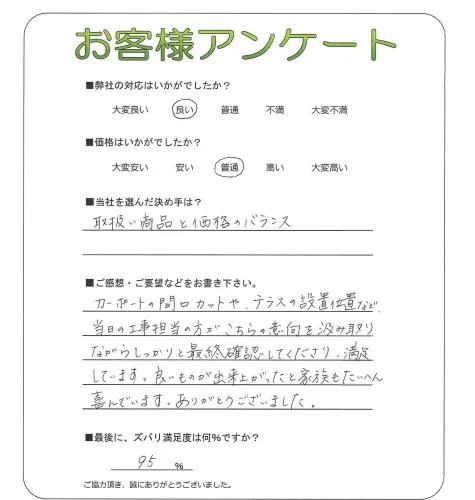 お客様アンケート
■弊社の対応はいかがでしたか？
大変良い 良い 普通 不満 大変不満
■価格はいかがでしたか？
大変安い 安い 普通 高い 大変高い
■当社を選んだ決め手は？
取扱い商品と価格のバランス
■ご感想・ご要望などをお書き下さい。
カーポートの間口カットや、テラスの設置位置など、
当日の工事担当の方がこちらの意向を汲み取り
ながらしっかりと最終確認してくださり、満足
しています。良いものが出来上がったと家族もたいへん
喜んでいます。ありがとうございました。
■最後に、ズバリ満足度は何%ですか？
95 %
ご協力頂き、誠にありがとうございました。